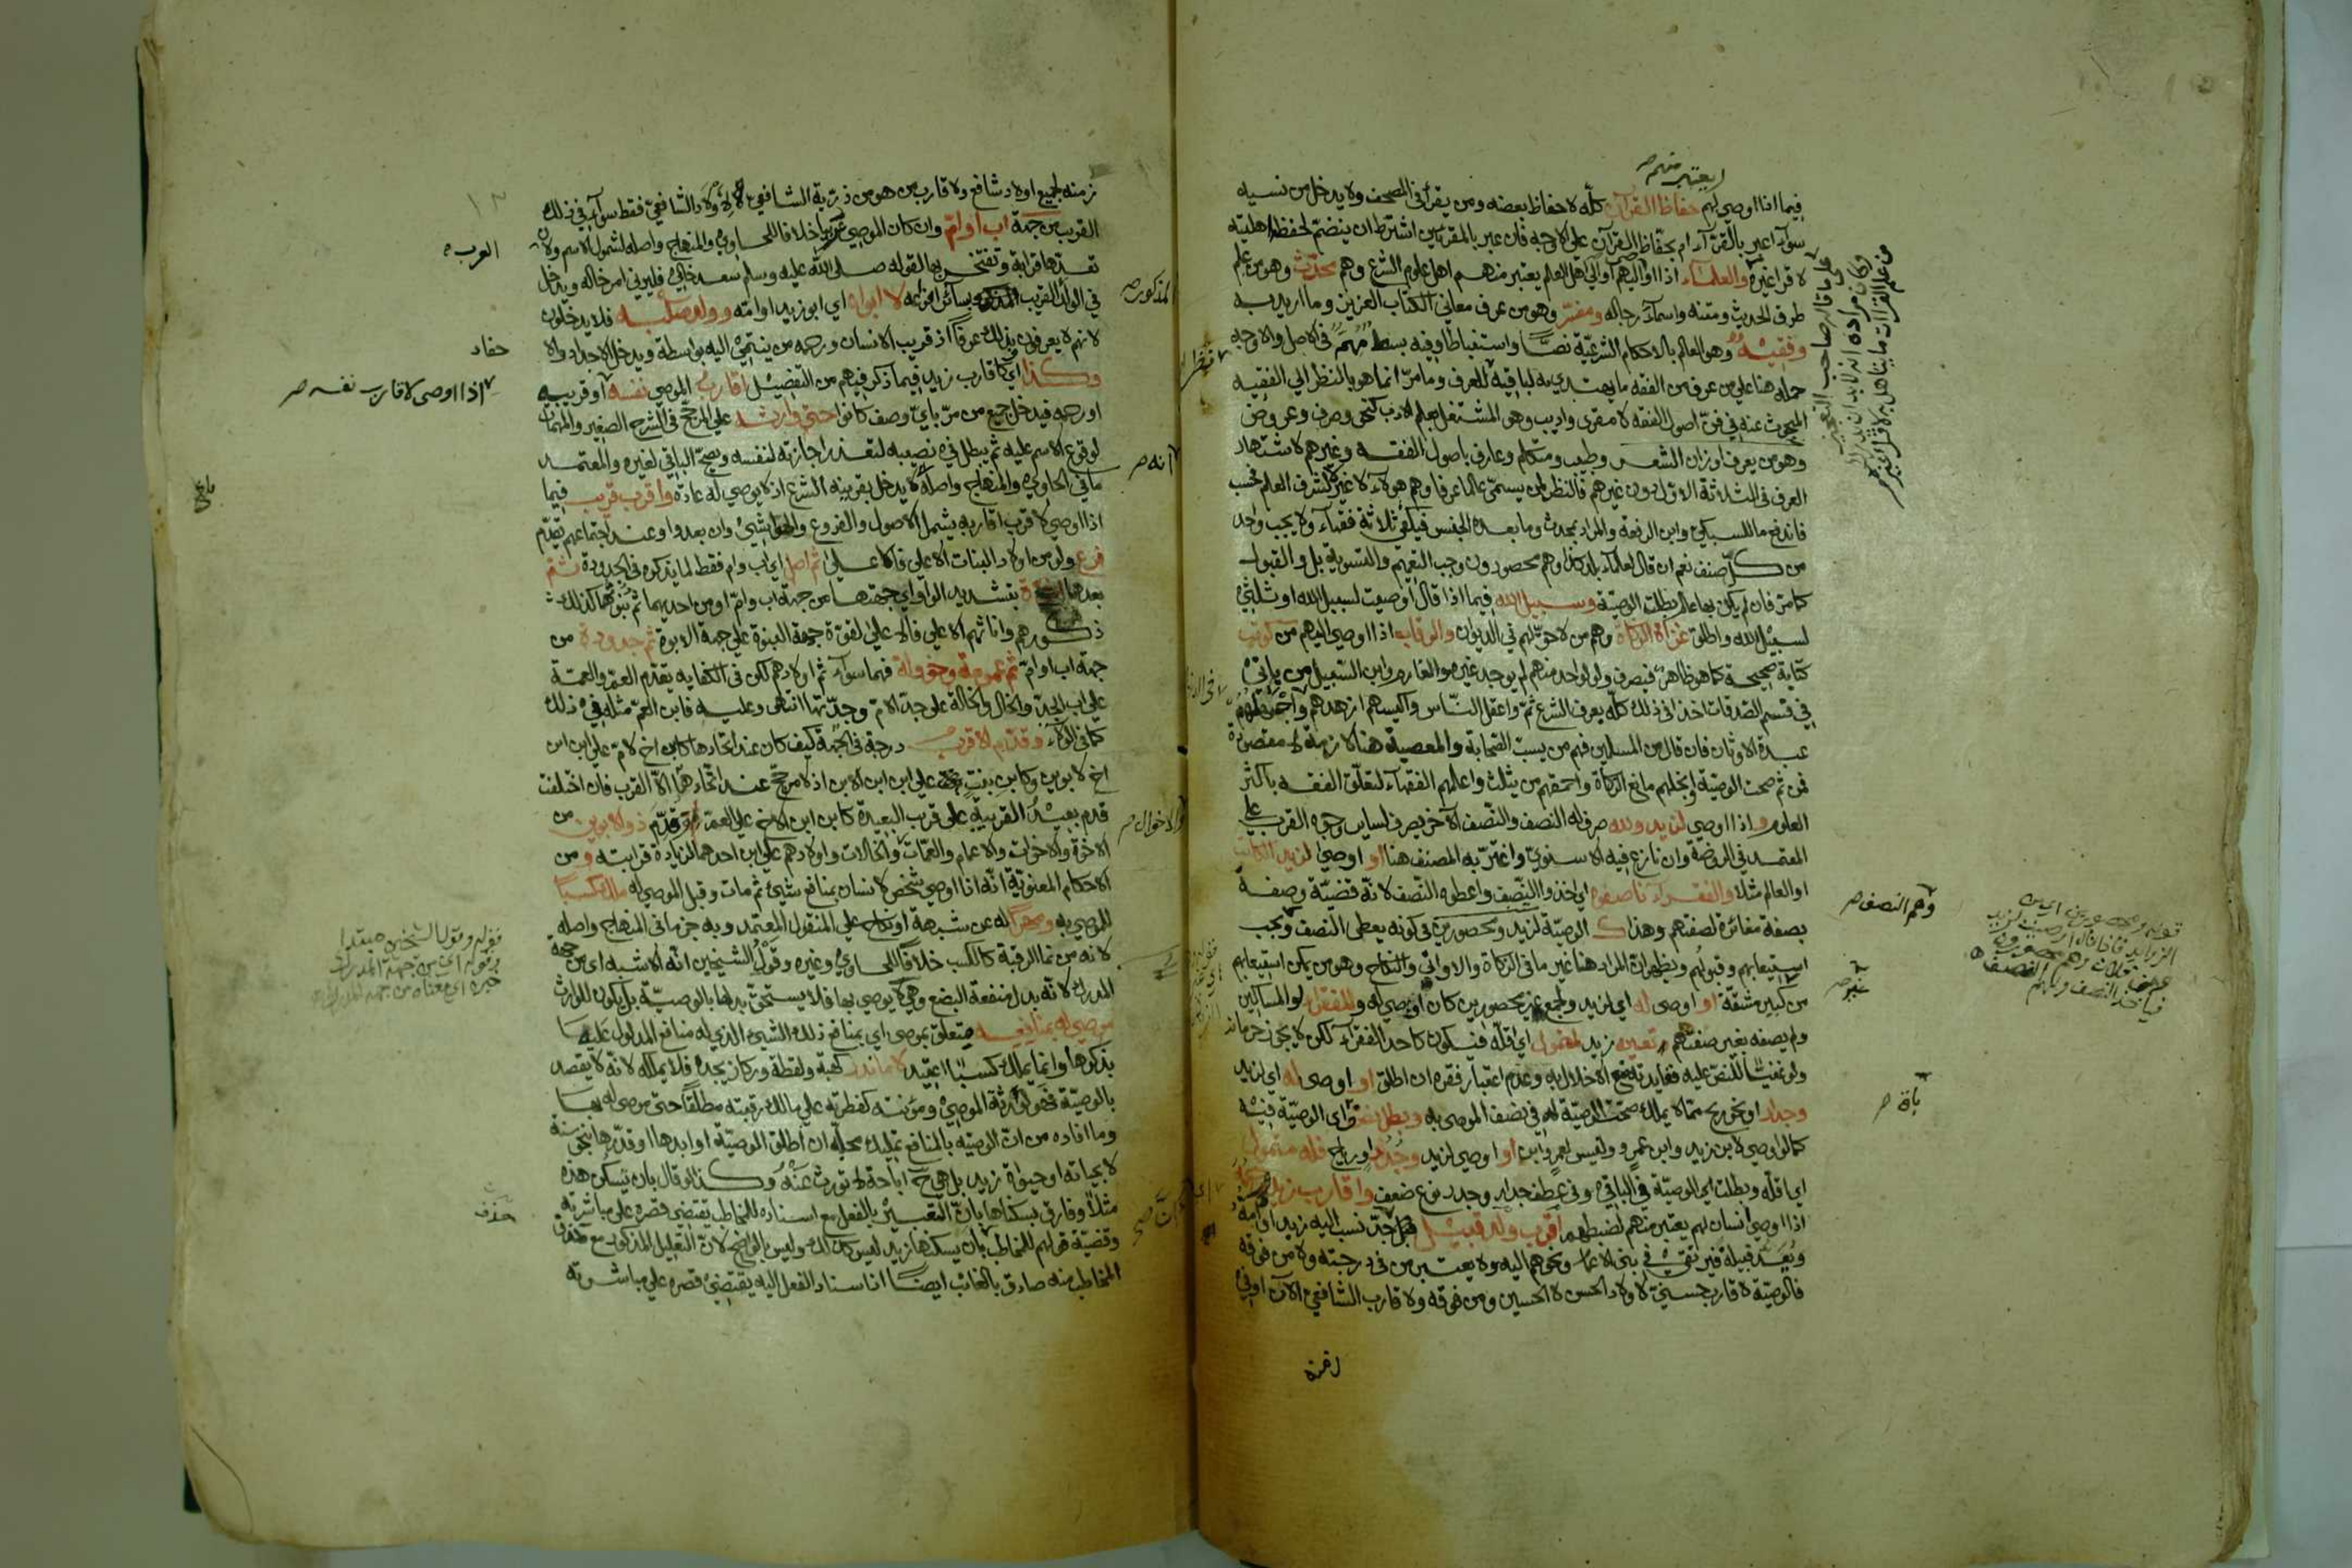 يعتبر منهم صح
فيما اذا اوصي لهم حفاظ القرآن كلّه لا حفاظ بعضه ومن يقرأ في المصحف ولا يدخل من نسيه
سوآء اعبر بالقرّآء ام بحفاظ القرآن على الاوجه فان عبر بالمقرئين اشترط ان ينضم لحفظه اهليته
لاقراء غيره والعلمآء اذا اوصي لهم او لاهل العلم يعتبر منهم اهل علوم الشرع وهم محدّث وهو من علم
طرق الحديث ومتنه واسمآء رجاله ومفسّر وهو من عرف معاني الكتاب العزيز وما اريد به
وفقيه وهو العالم بالاحكام الشرعيّة نصّا واستنباطا وفيه بسط في الاصل والاوجه
حمله هنا على من عرف من الفقه ما يهتدي به لباقيه للعرف وما مرّ انما هو بالنظر الي الفقيه
المبحوث عنه في فنّ اصول الفقه لا مقري واديب وهو المشتغل بعلم الادب كنحو وصرف وعروض
وهو من يعرف اوزان الشعر وطبيب ومتكلم وعارف باصول الفقه وغيرهم لاشتهار
العرف في الثلاثة الاول دون غيرهم فالنظر لمن يسمّى عالما عرفا وهم هولآء لا غير لا لشرف العلم فحسب
فاندفع ما للسبكي وابن الرفعة والمراد بمحدث وما بعده الجنس فيكفي ثلاثة فقهآء ولا يجب واحد
من كلّ صنف نعم ان قال لعلمآء بلد كذا وهم محصورون وجب التعميم والتسوية بل والقبول
كما مرّ فان لم يكن بها عالم بطلت الوصيّة وسبيل الله فيما اذا قال اوصيت لسبيل الله او ثلثي
لسبيل الله واطلق غزاة الزكاة وهم من لا حقّ لهم في الديوان والرقاب اذا اوصي اليهم من كوتب
كتابة صحيحة كما هو ظاهر فيصرف ولو لواحد منهم لم يوجد غيره والغارم وابن السّبيل من ياتي
في قسم الصّدقات اخذا في ذلك كلّه بعرف الشرع ثمّ واعقل النّاس واكيسهم ازهدهم واجهلهم
عبدة الاوثان فان قال من المسلمين فهم من يسبّ الصّحابة والمعصية هنا لازمة لا مقصودة
فمن ثم صحت الوصيّة وابخلهم مانع الزكاة واحمقهم من يثلث واعلمهم الفقهآء لتعلّق الفقه باكثر
العلوم واذا اوصي لزيد ولله صرف له النصف والنّصف الآخر يصرف لساير وجوه القرب على
المعتمد في الروضة وان نازع فيه الاسنوي واغترّ به المصنف هنا او اوصي لزيد الكاتب
او العالم مثلا والفقرآء ناصفهم اي اخذ النّصف واعطوا النّصف لانّه قضيّة وصفه
بصفة مغائرة لصفتهم وهذا كالوصيّة لزيد ومحصورين في كونه يعطي النصف ويجب
استيعابهم وقبولهم ويظهر ان المراد هنا غير ما في الزكاة والاواني والنكاح وهو من يمكن استيعابهم
من كبير مشقّة او اوصي له اي لزيد ولجمع غير محصورين كان اوصي له وللفقرآء او المساكين
ولم يصفه بغير صفتهم تعين زيد لمتمول اي اقلّه فيكون كاحد الفقرآء لكن لا يجوز حرمانه
ولو نفيسا للنصّ عليه ففايدته منع الاخلال به وعدم اعتبار فقره ان اطلق او اوصي له اي لزيد
وجدار او نحو ريح ممّا لا يملك صحّت الوصيّة له في نصف الموصي به وبطل نصف اي الوصيّة فيه
كما لو اوصي لابن زيد وابن عمرو وليس لعمرو ابن او اوصي لزيد وجُدر او رياح فله متمول
اي اقلّه وبطلت اي الوصيّة في الباقي وفي عطف جدار وجدر نوع ضعف واقارب زيد
اذا اوصي انسان لهم يعتبر منهم لضبطهم اقرب ولد قبيل فكل جدّ نسب اليه زيد او امه
ويُعَدّ قبيلة فيرتقي في بني الاعمام ونحوهم اليه ولا يعتبر من في درجته ولا من فوقه
فالوصيّة لاقارب حسني لاولاد الحسن لا الحسين ومن فوقه ولاقارب الشافعي الآن او في
زمنه
على ما قاله صاحب التعجيز
وكان مراده انه لابد ان يدري
من علم القراات ما يتاهل به لاقراء الغير
وهم النصف صح
غير صح
باقه صح
زمنه لجميع اولاد شافع ولاقارب من هو من ذرّيّة الشافعي لاولاد الشّافعيّ فقط سوآء في ذلك
القريب من جهة اب او امّ وان كان الموصي عربيا خلافا للحاوي والمنهاج واصله لشمول الاسم ولان
تعدّها قرابة وتفتخر بها لقوله صلى الله عليه وسلم سعد خالي فليرني امرء خاله ويدخل
في الولد القريب بسائر انواعه لا ابواه اي ابو زيد او امّه وولد صلبه فلا يدخلون
لانهم لا يعرفون بذلك عرفا اذ قريب الانسان ورحمه من ينتمي اليه بواسطة ويدخل الاجداد والا
وكذا اي كاقارب زيد فيما ذكر فيهم من التفصيل اقارب الموصي نفسه او قريبه
او رحمه فيدخل جميع من مرّ باي وصف كانوا حتى وارثه على المرجّح في الشرح الصغير والمهمات
لوقوع الاسم عليه ثم يبطل في نصيبه لتعذر اجازته لنفسه ويصحّ الباقي لغيره والمعتمد
ما في الحاوي والمنهاج واصله لا يدخل بقرينة الشرع اذ لا يوصي له عادة واقرب قريب فيما
اذا اوصي لاقرب اقاربه يشمل الاصول والفروع والحواشي وان بعدوا وعند اجتماعهم يقدّم
فرع ولو من اولاد البنات الاعلى فالاعلى ثم اصل اي اب وام فقط لما يذكره في الجدودة ثم
بعدهما اخوّة بتشديد الواو اي جهتها من جهة اب وامّ او من احديهما ثمّ بنوّتهما كذلك
ذكورهم واناثهم الاعلى فالاعلى لقوّة جهة البنوة على جهة الابوة ثم جدودة من
جهة اب او امّ ثم عمومة وخؤولة فهما سوآء ثم اولادهم لكن في الكفاية يقدّم العمّ والعمّة
على اب الجدّ والخال والخالة على جدّ الامّ وجدّتها انتهى وعليه فابن العمّ مثله في ذلك
كما في الولآء وقدّم الاقرب درجة في الجهة كيف كان عند اتحادها كابن اخ لامّ على ابن ابن
اخ لابوين وكابن بنت على ابن ابن الابن اذ لا مرجّح عند اتّحادهما الاّ القرب فان اختلفت
قدم بعيدُ القريبة على قريب البعيدة كابن ابن الاخ على العمّ وقدّم ذو الابوين من
الاخوة والاخوات والاعمام والعمّات والخالات واولادهم على ابن احدهما لزيادة قرابته ومن
الاحكام المعنويّة انّه اذا اوصي شخص لانسان بمنافع شيئ ثم مات وقبل الموصي له ملك كسبا
للموصي به ومهرا له عن شبهة او نكاح علي المنقول المعتمد وبه جزم في المنهاج واصله
لانه من نما الرقبة كالكسب خلافا للحاوي وغيره وقول الشيخين انّه الاشبه اي من جهة
المدرك لانّه بدل منفعة البضع وهي لا يوصي بها فلا يستحقّ بدلها بالوصيّة بل يكون للوارث
موصي له بمنافعه متعلق بموصى اي بمنافع ذلك الشيئ الذي له منافع المدلول عليه
بذكرها وانما يملك كسبًا اعتيد لا ما ندر كهبة ولقطة وركاز يجده فلا يملكه لانّه لا يقصد
بالوصيّة فهو لورثة الموصي ومؤنته كفطرته على مالك رقبته مطلقًا حتى موصى له بها
وما افاده من انّ الوصيّة بالمنافع تمليك محلّه ان اطلق الوصيّة او ابدها او قدّرها بنحو سنة
لا بحياته او حيوة زيد بل هي ح اباحة لا تورث عَنْهُ وكذا لو قال بان يسكن هذه
مثلا وفارق بسكناها بانّ التعبير بالفعل مع اسناده للمخاطب يقتضي قصره على مباشرته
وقضيّة قولهم للمخاطب بان يسكنها زيد ليس كذلك وليس بالواضح لانّ التعليل المذكور مع حذف
المخاطب منه صادق بالغائب ايضًا اذ اسناد الفعل اليه يقتضي قصره على مباشرته
العرب
المذكور صح
حفاد
اذا اوصى لاقارب نفسه صح
انه صح
بلغ
والاخوال صح
حذف